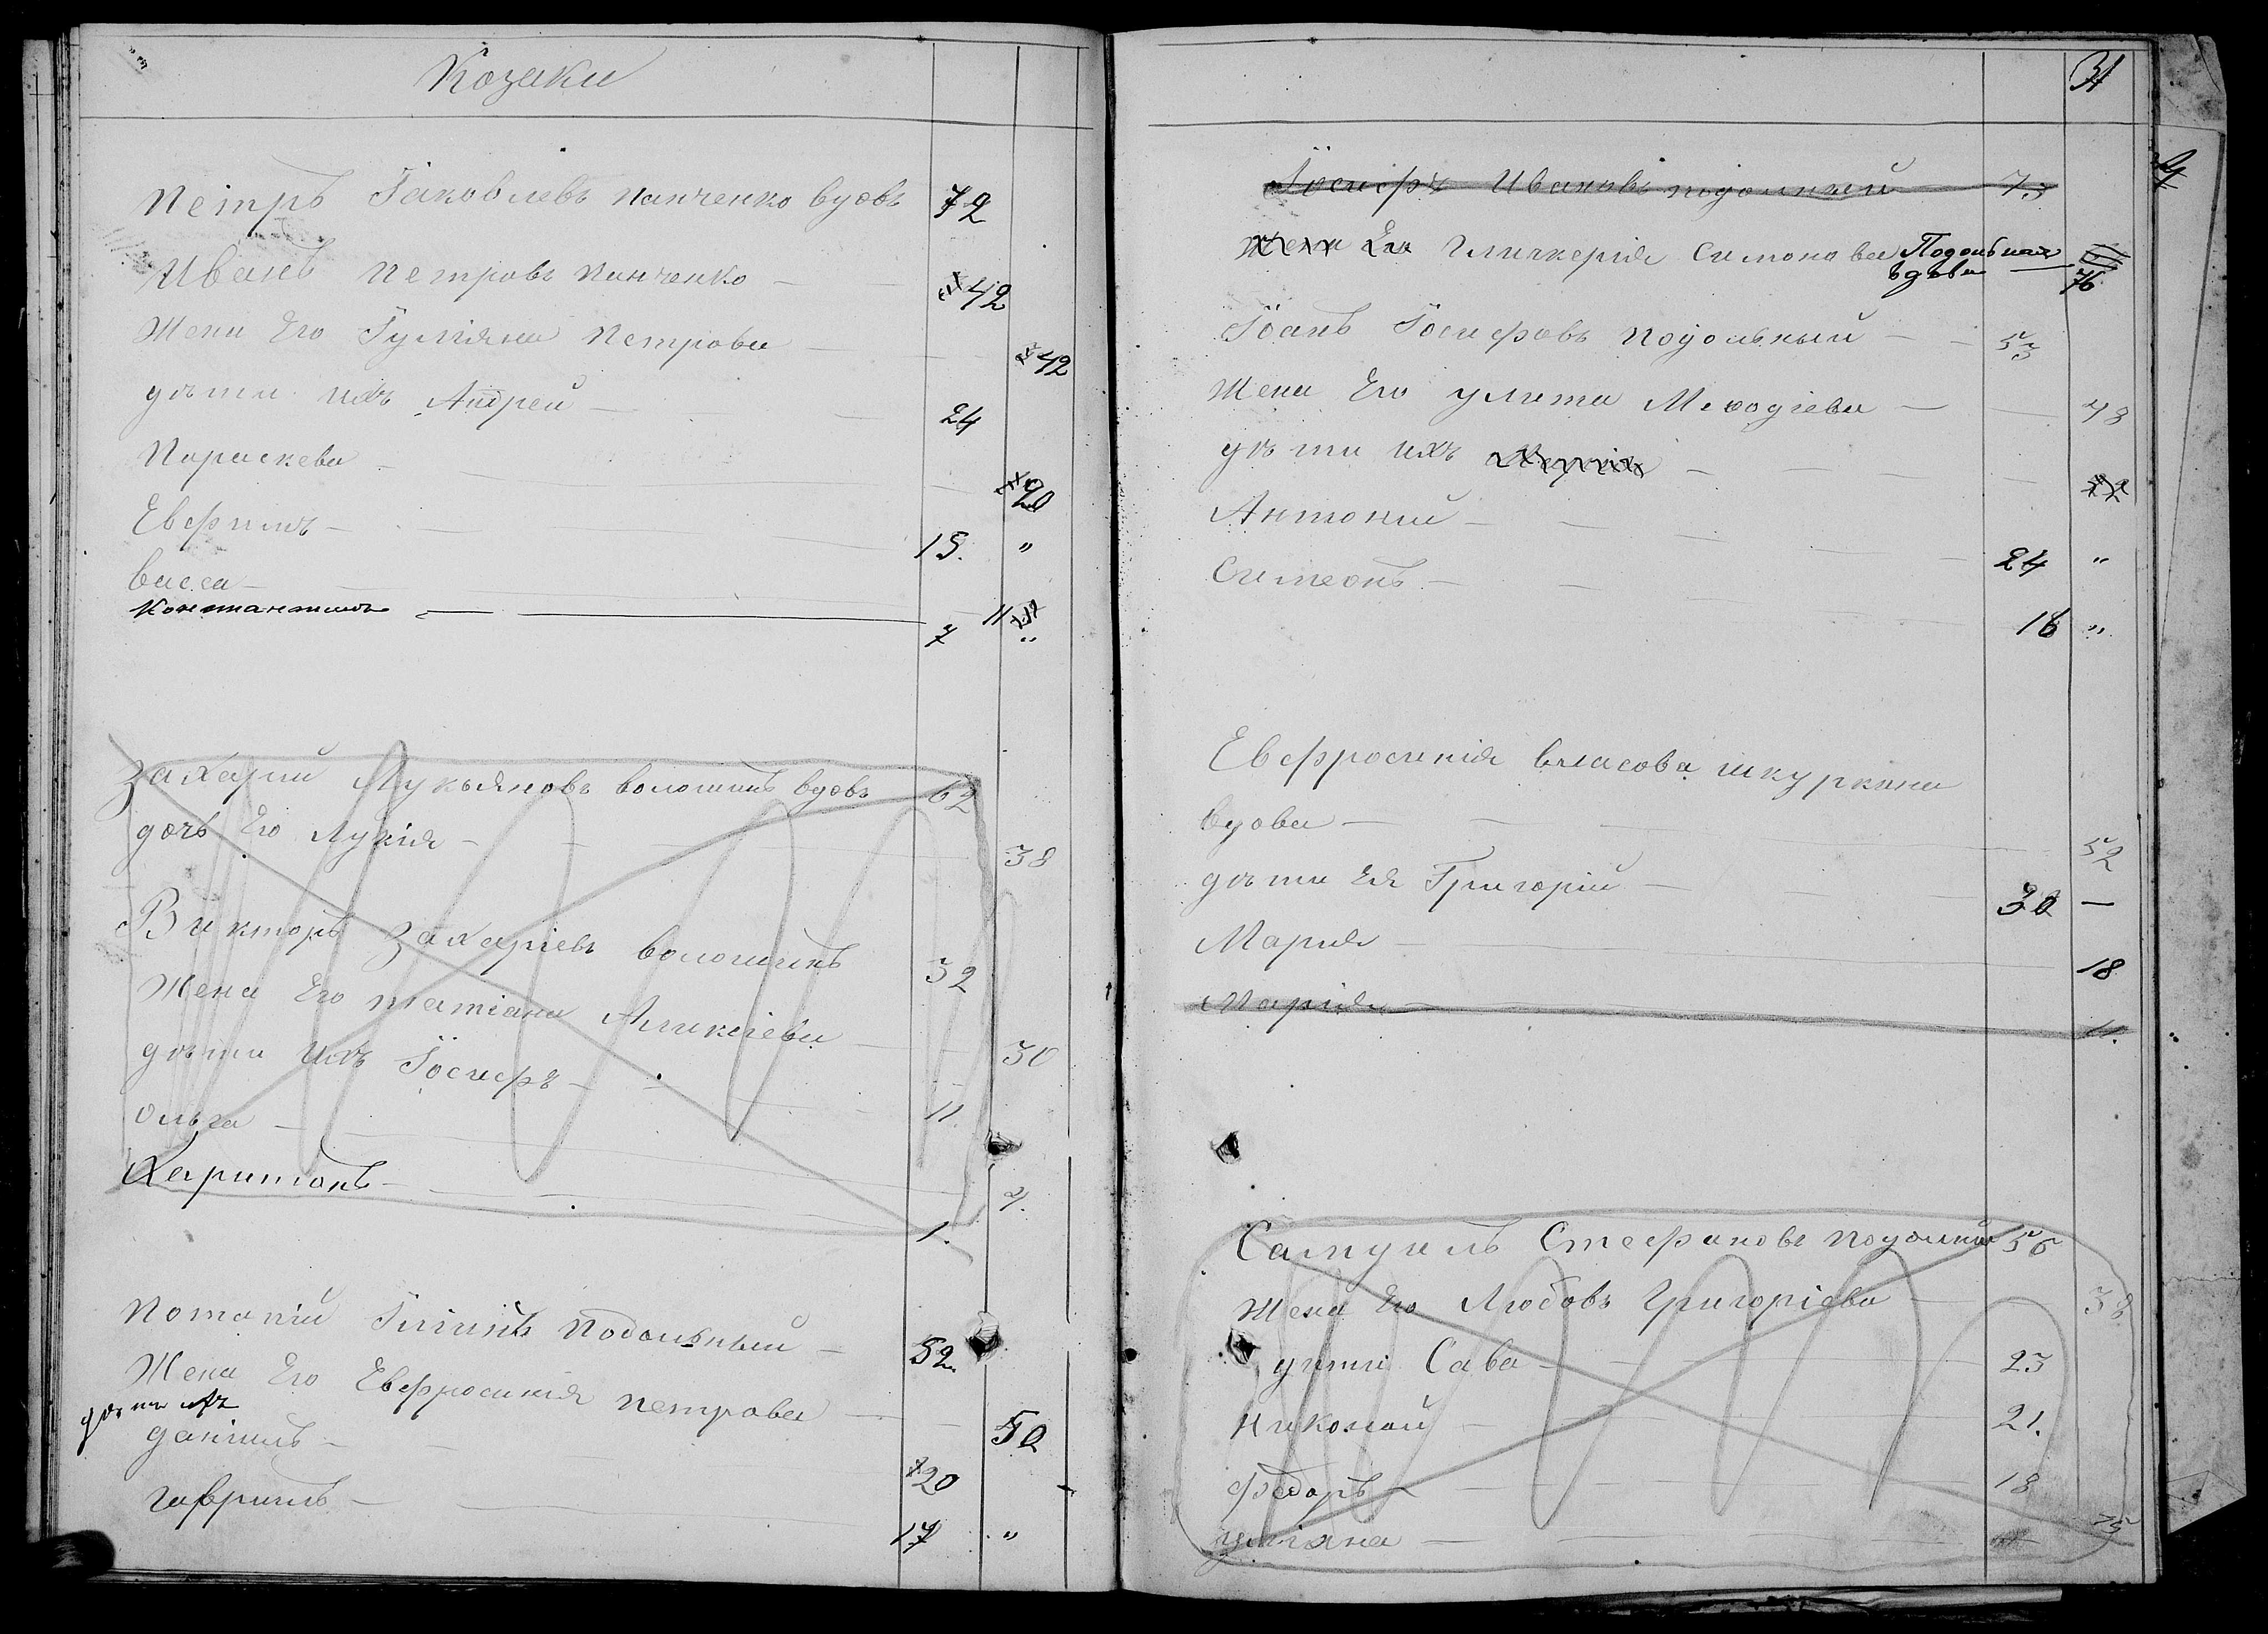 Козаки
Петръ Іаковлевъ Панченко вдовъ 72
Иванъ Петровъ Панченко — 42
Жена Его Іуліяна Петрова — 42
дѣти ихъ Андрей — 24
Параскева — 20
Евфимъ — 15. "
Васса — 11
Константинъ — 7 "
Захарий Лукьяновъ Волошинъ вдовъ 62
дочь Его Лукія — 38
Викторъ Захаріевъ Волошинъ 32
Жена Его Татіана Алексіева — 30
дѣти ихъ Іосифъ — 11
Ольга —
Харитонъ — 1.
Потапій Подольный — 52.
Жена Его Евфросинія Петрова — 50
дѣти ихъ
Даніилъ — 20
Гавриилъ — 17 "
31
Іосифъ Ивановъ Подольный — 73
Жена Его Гликерія Симонова Подольная
вдова — 76
Іоанъ Іосифовъ Подольный — 53
Жена Его Улита Меѳодіева — 43
дѣти ихъ — 22
Антоній — 24 "
Симеонъ — 16 "
Евфросинія Власова Шкуркина
вдова — 52
дѣти Ея Григорій — 30 —
Марія — 18
Марія — 11.
Самуилъ Стефановъ Подольный 56
Жена Его Любовь Григоріева — 38
дѣти Сава — 23
Николай — 21.
Федоръ — 18
Уліяна — 15